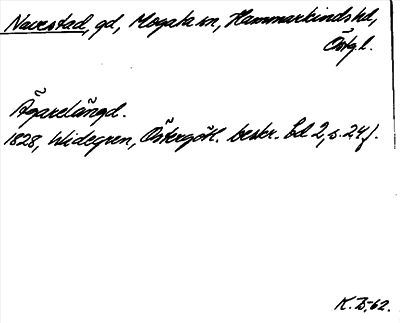 Navestad, gd, Mogata sn, Hammarkinds hd,
Östg.l.
Ägarelängd.
1828, Widegren, Östergötl. beskr. bd 2, s. 24 f.
K. D. 62.